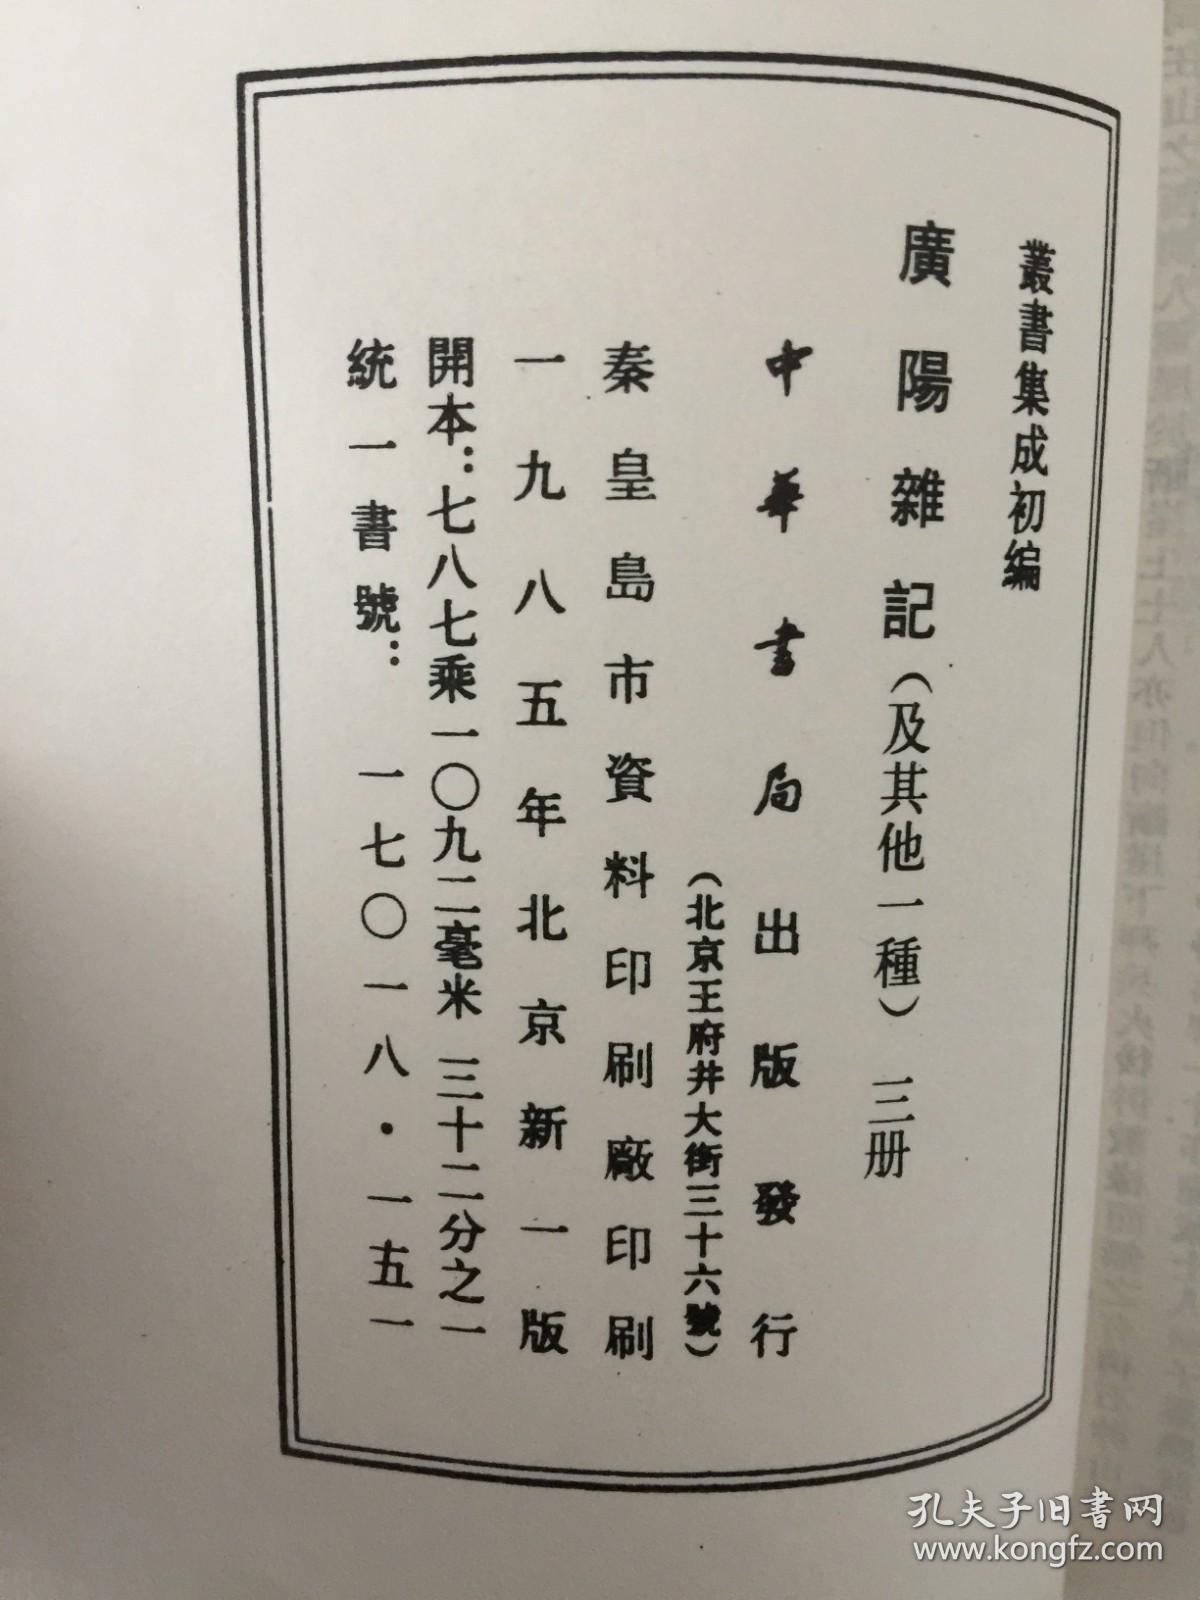 叢書集成初編
廣陽雜記（及其他一種）　三册
中華書局出版發行
（北京王府井大街三十六號）
秦皇島市資料印刷廠印刷
一九八五年北京新一版
開本：七八七乘一〇九二毫米　三十二分之一
統一書號：一七〇一八·一五一
孔夫子旧书网
www.kongfz.com